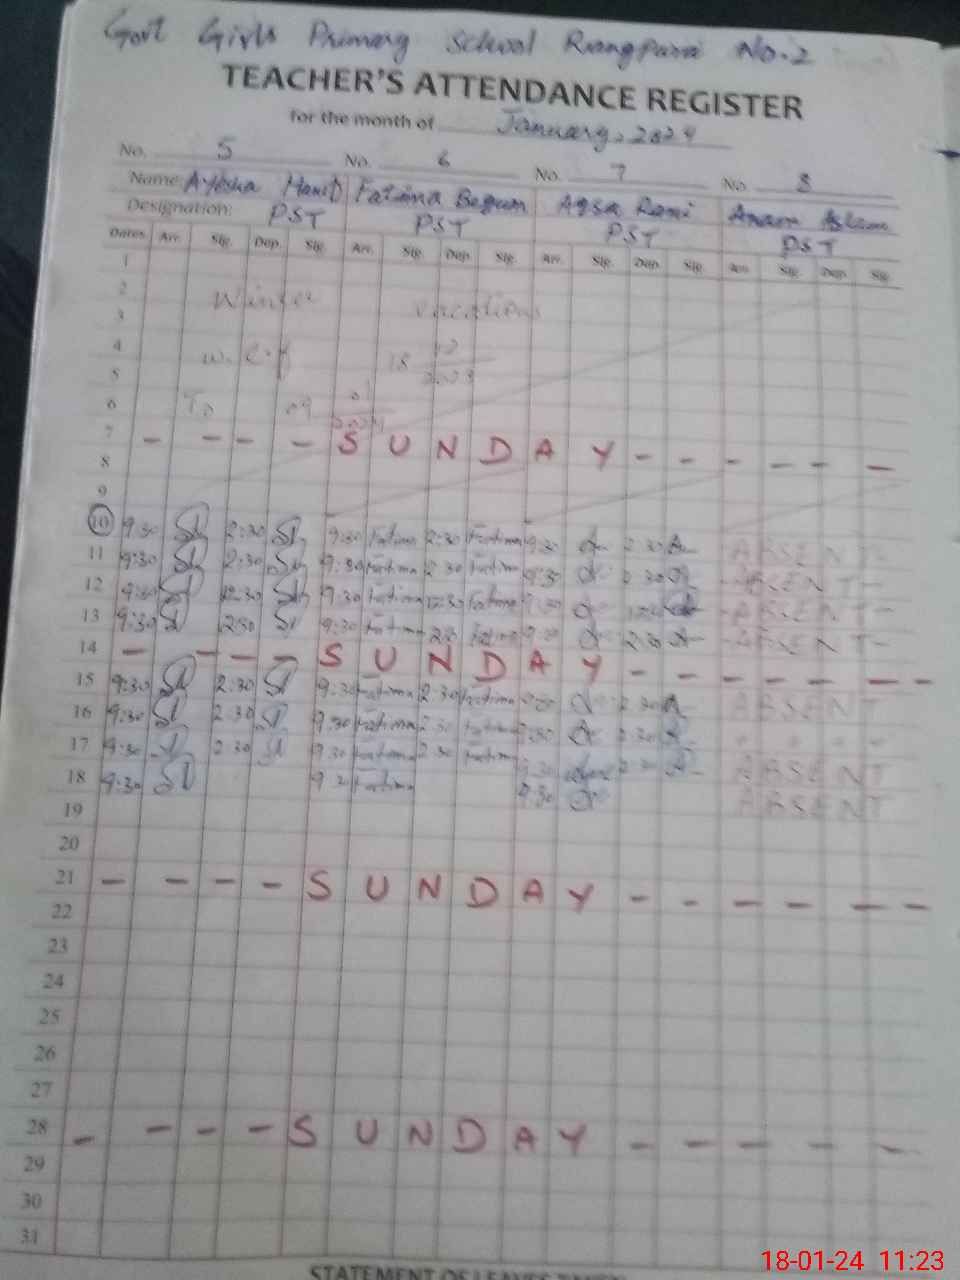 Govt Girls Primary School Rangpura No.2
TEACHER'S ATTENDANCE REGISTER
for the month of January, 2024
No. 5 No. 6 No. 7 No. 8
Name: Ayesha Hanif Fatima Begum Aqsa Rani Anam Aslam
Designation: PST PST PST PST
Dates Arr. Sig. Dep. Sig. Arr. Sig. Dep. Sig. Arr. Sig. Dep. Sig. Arr. Sig. Dep. Sig.
1
2 Winter vacations
3
4 w.e.f 18 12 2023
5
6 To 09 01 2024
7 - - - - S U N D A Y - - - - - -
8
9
10 9:30 2:30 9:30 Fatima 2:30 Fatima 9:30 2:30 ABSENT
11 9:30 2:30 9:30 Fatima 2:30 Fatima 9:30 2:30 ABSENT-
12 9:30 12:30 9:30 Fatima 12:30 Fatima 9:30 ABSENT-
13 9:30 2:30 9:30 Fatima 2:30 Fatima 9:30 2:30 ABSENT-
14 - - - - S U N D A Y - - - - - -
15 9:30 2:30 9:30 Fatima 2:30 Fatima 2:30 ABSENT
16 9:30 2:30 9:30 Fatima 2:30 Fatima 9:30 2:30
17 9:30 2:30 9:30 Fatima 2:30 Fatima 9:30 2:30 ABSENT
18 9:30 Fatima 9:30 ABSENT
19
20
21 - - - - S U N D A Y - - - - - -
22
23
24
25
26
27
28 - - - - S U N D A Y - - - - -
29
30
31
18-01-24 11:23